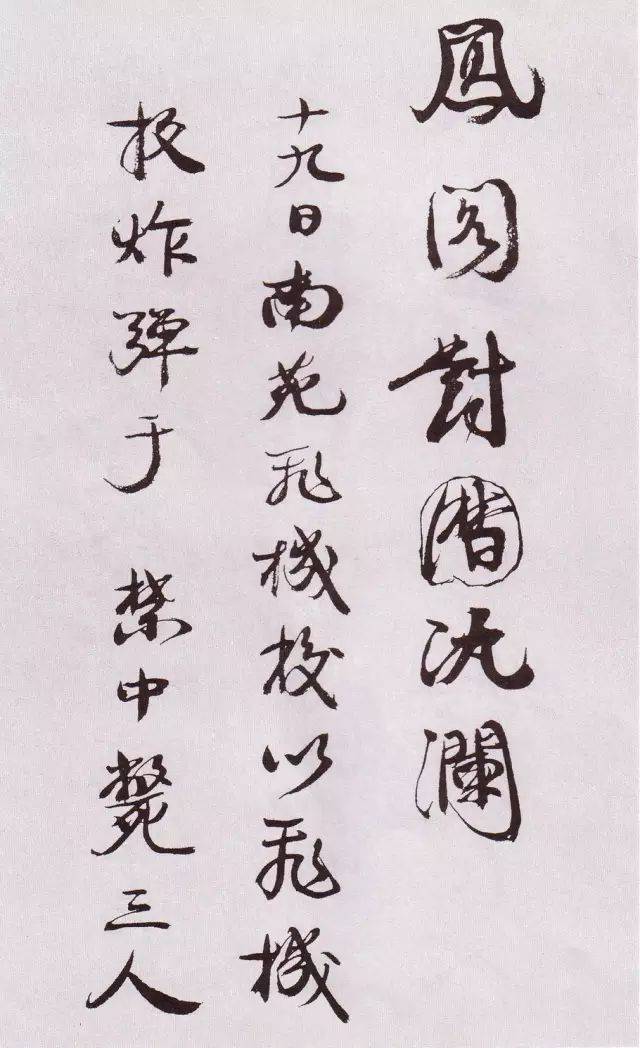 鳳閣對潜汍瀾
十九日南苑飛機校以飛機
投炸彈于 禁中斃三人